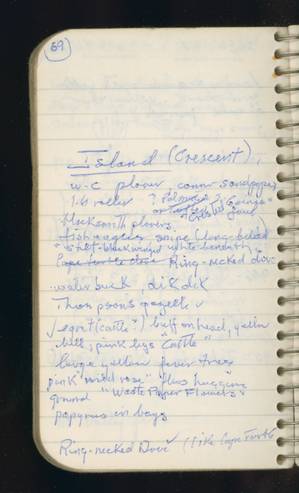 69
Island (Crescent),
w-c plover comm sandpiper
l.b roller ? Palmnut
or "Guinea"
blacksmith plovers, Crested fowl
fish eagles snipe (long-billed
stilt - blackwinged white beneath
Cape turtle dove Ring-necked dove
water buck, dik dik
Thompsons gazelle ✓
✓ egret (cattle") buff on head, yellow
bill, pink legs "Cattle"
large yellow fever trees
pink "wild rose" flws hugging
ground "Waste Paper Flowers"
papyrus in bays
Ring-necked Dove ✓ (like Cape Turtle